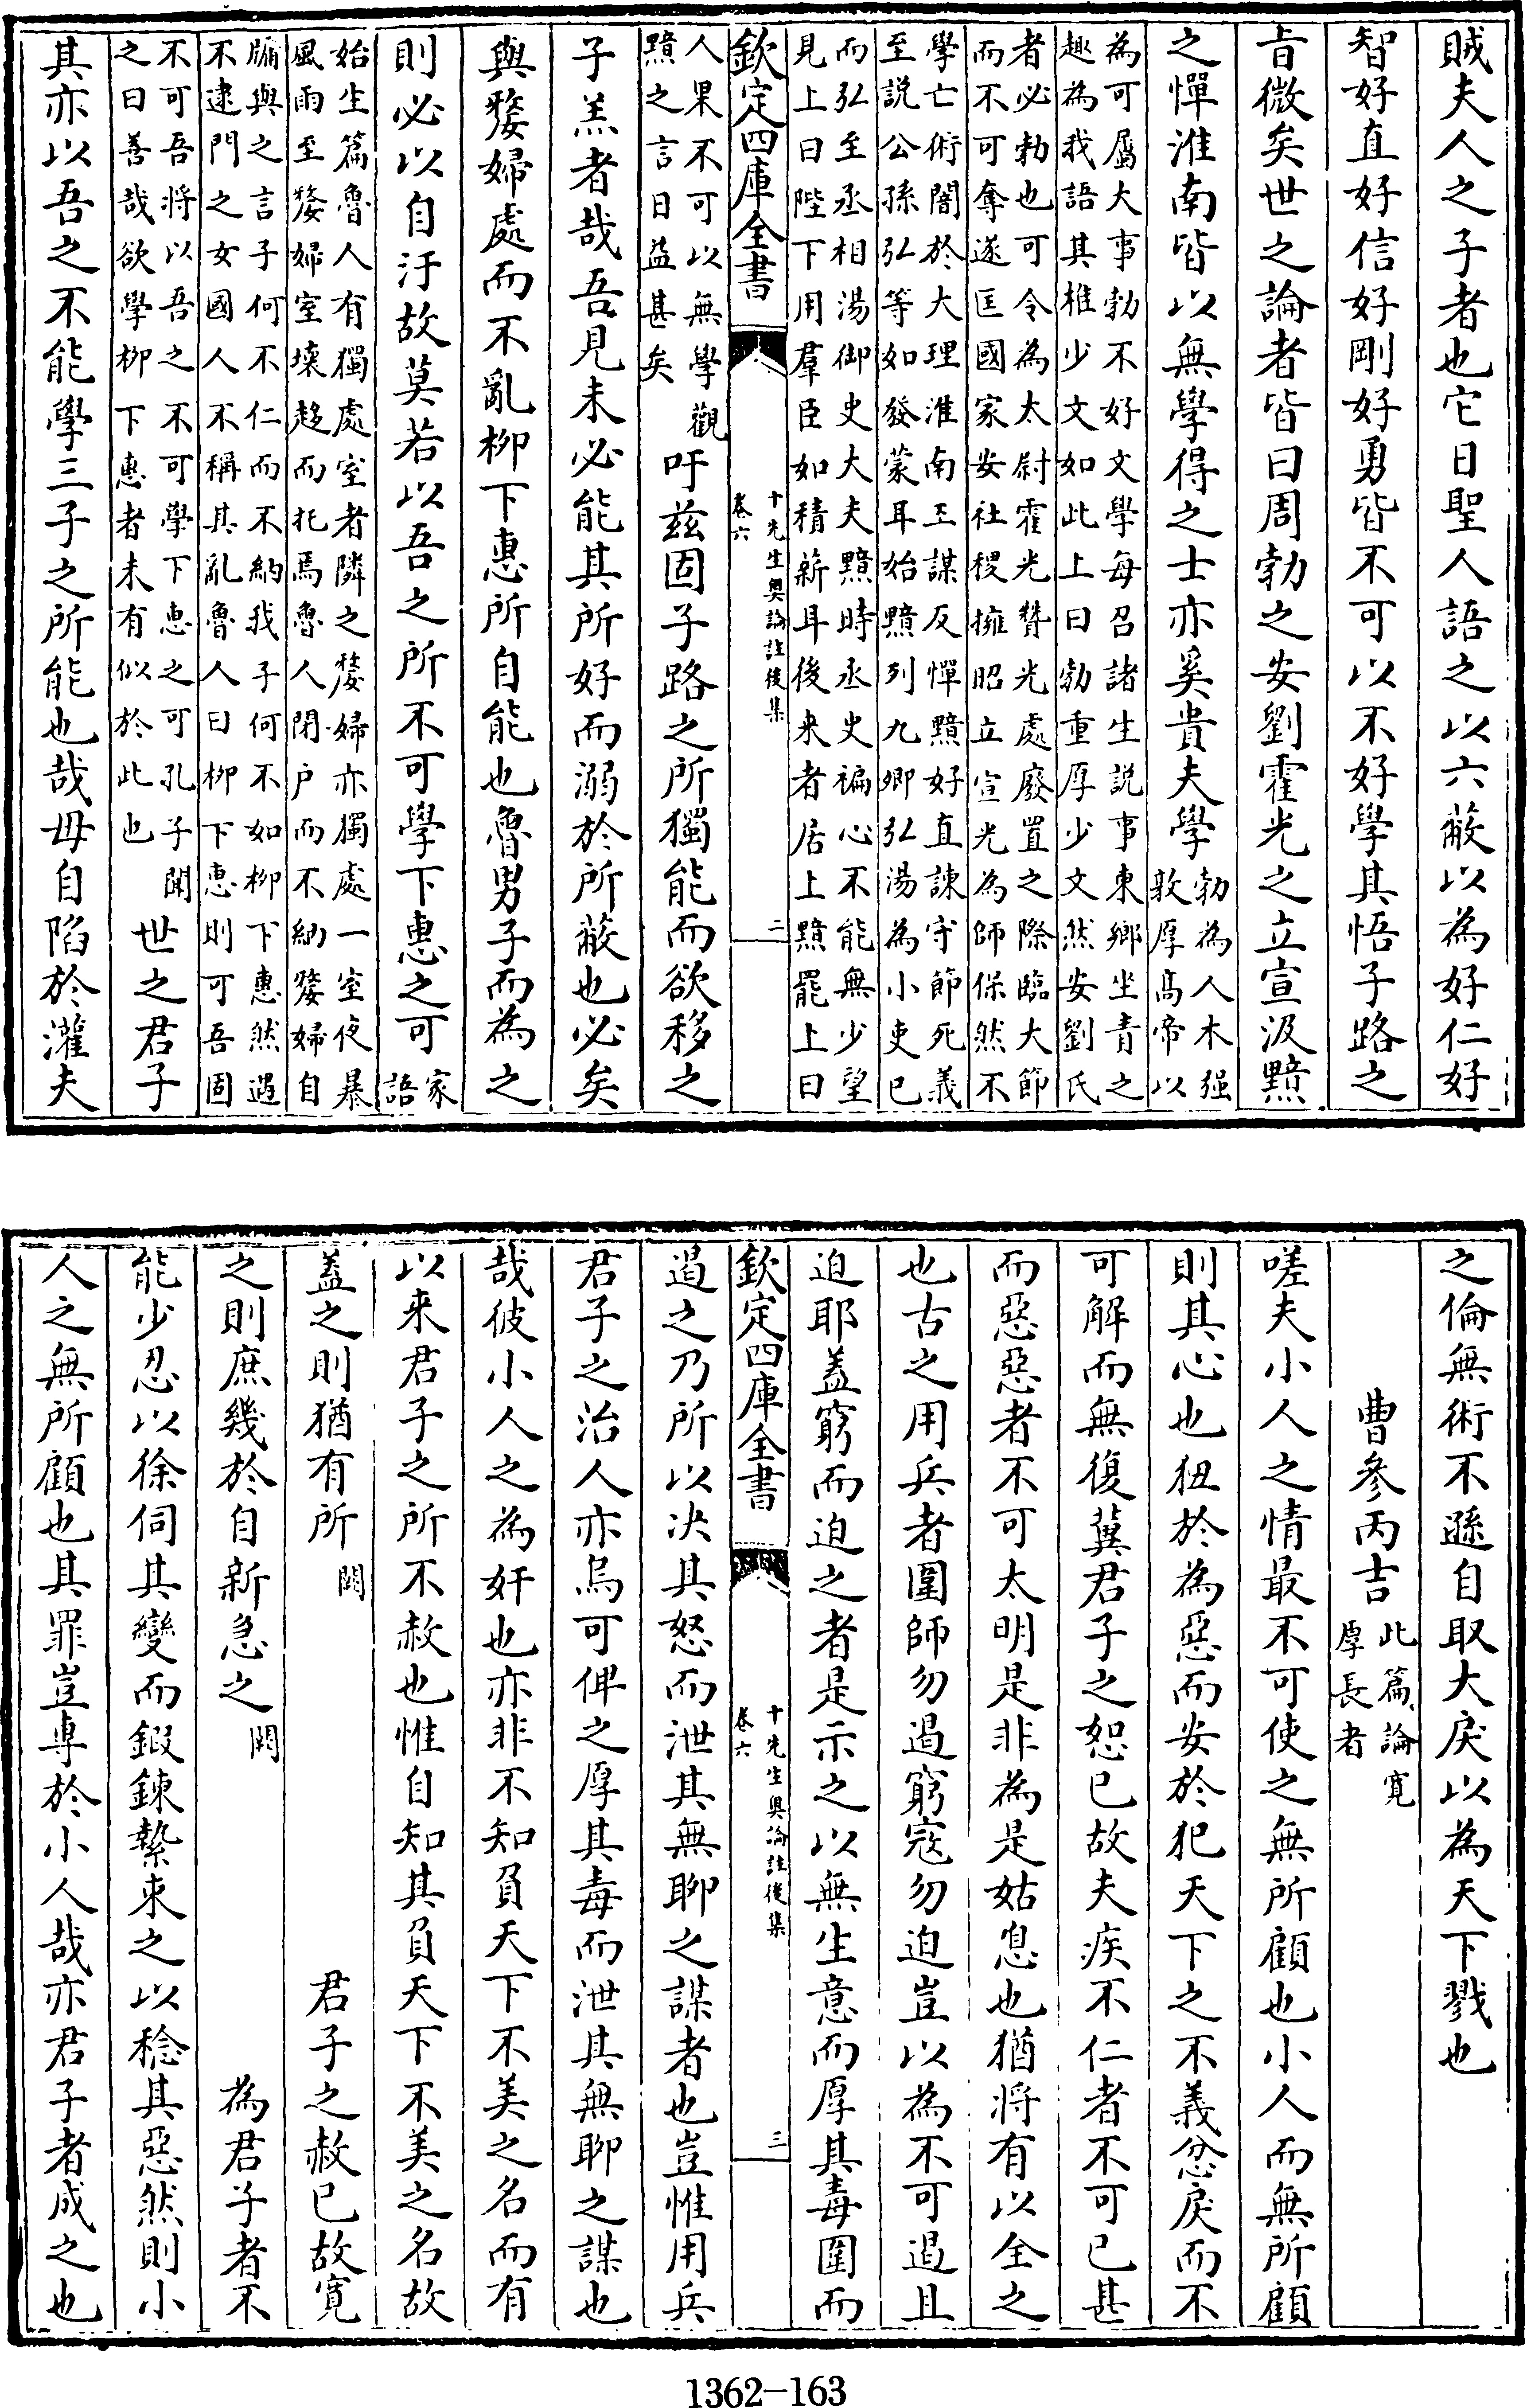 賊夫人之子者也它日聖人語之以六蔽以為好仁好
智好直好信好剛好勇皆不可以不好學其悟子路之
㫖微矣世之論者皆曰周勃之安劉霍光之立宣汲黯
之憚淮南皆以無學得之士亦奚貴夫學
勃為人木强
敦厚高帝以
為可屬大事勃不好文學每召諸生説事東鄉坐青之
趣為我語其椎少文如此上曰勃重厚少文然安劉氏
者必勃也可令為太尉霍光贊光處廢置之際臨大節
而不可奪遂匡國家安社稷擁昭立宣光為師保然不
學亡術闇於大理淮南王謀反憚黯好直諫守節死義
至説公孫弘等如發蒙耳始黯列九卿弘湯為小吏已
而弘至丞相湯御史大夫黯時丞史褊心不能無少望
見上曰陛下用羣臣如積薪耳後来者居上黯罷上曰
欽定四庫全書
十先生奥論註後集
卷六
二
人果不可以無學觀
黯之言日益甚矣
吁兹固子路之所獨能而欲移之
子羔者哉吾見未必能其所好而溺於所蔽也必矣
與嫠婦處而不亂柳下惠所自能也魯男子而為之
則必以自汙故莫若以吾之所不可學下惠之可
家
語
始生篇魯人有獨處室者隣之嫠婦亦獨處一室夜暴
風雨至嫠婦室壊趍而托焉魯人閉户而不納嫠婦自
牖與之言子何不仁而不納我子何不如柳下惠然遇
不逮門之女國人不稱其亂魯人曰柳下惠則可吾固
不可吾将以吾之不可學下恵之可孔子聞
之曰善哉欲學柳下惠者未有似於此也
世之君子
其亦以吾之不能學三子之所能也哉毋自陷於灌夫
之倫無術不遜自取大戾以為天下戮也
曹參丙吉
此篇論寛
厚長者
嗟夫小人之情最不可使之無所顧也小人而無所顧
則其心也狃於為惡而安於犯天下之不義忿戾而不
可解而無復冀君子之恕已故夫疾不仁者不可已甚
而惡惡者不可太明是非為是姑息也猶將有以全之
也古之用兵者圍師勿遏窮寇勿迫豈以為不可遏且
迫耶蓋窮而迫之者是示之以無生意而厚其毒圍而
欽定四庫全書
十先生奥論註後集
卷六
三
遏之乃所以决其怒而泄其無聊之謀者也豈惟用兵
君子之治人亦烏可俾之厚其毒而泄其無聊之謀也
哉彼小人之為奸也亦非不知負天下不美之名而有
以来君子之所不赦也惟自知其負天下不美之名故
蓋之則猶有所
闕
君子之赦已故寛
之則庶幾於自新急之
闕
為君子者不
能少忍以徐伺其變而鍜鍊縶束之以稔其惡然則小
人之無所顧也其罪豈專於小人哉亦君子者成之也
1362-163